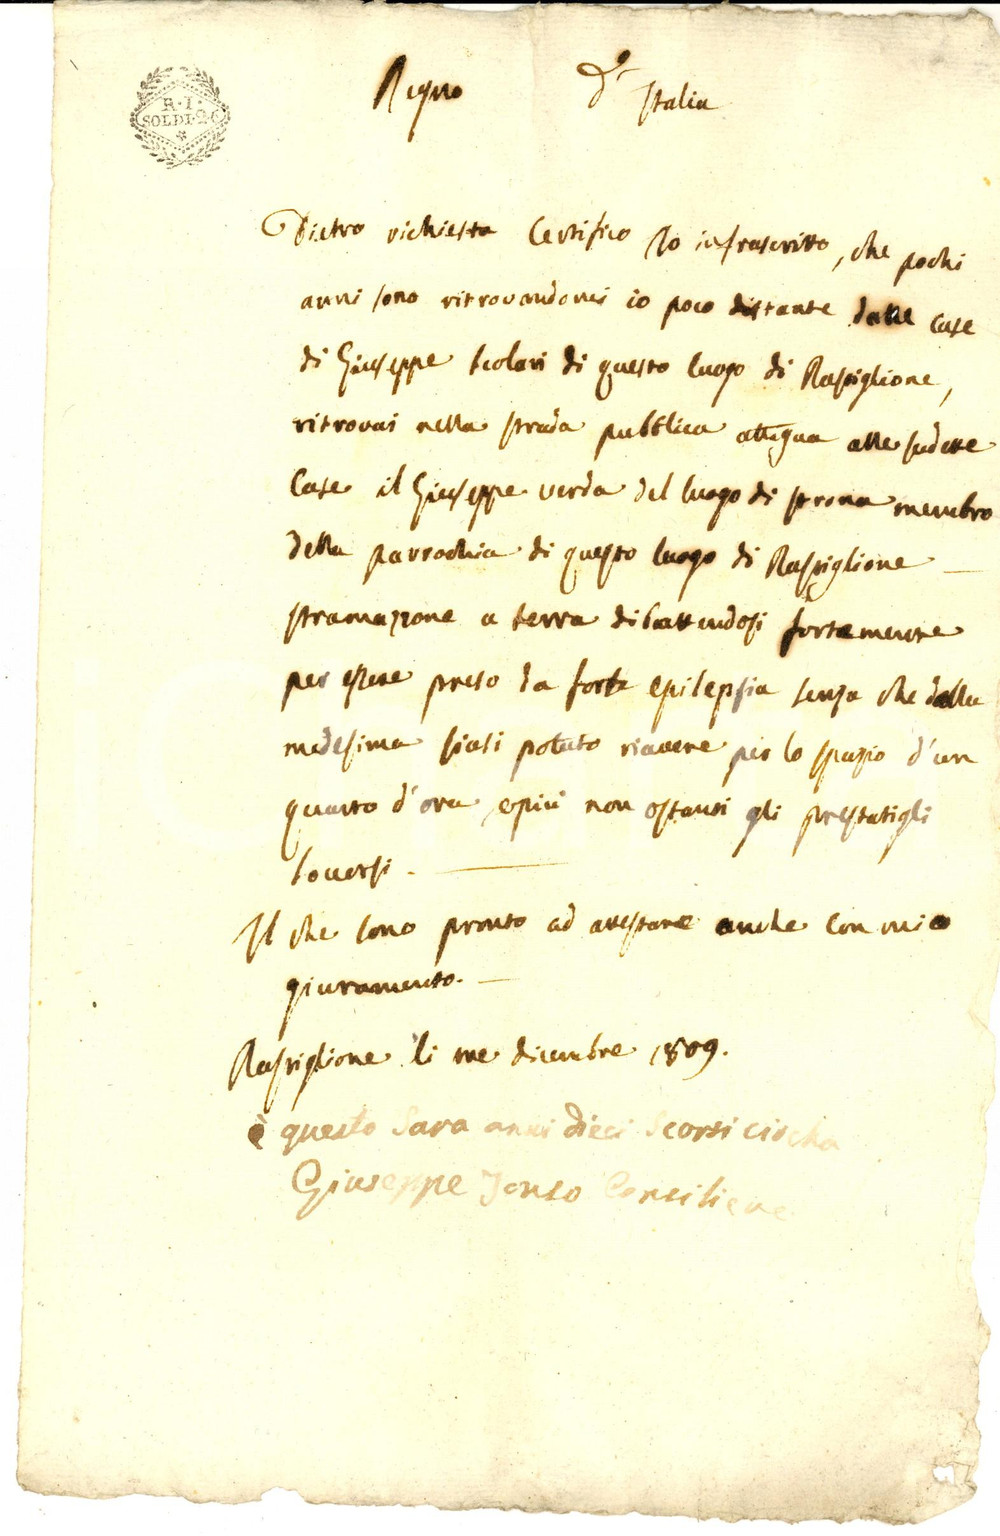 R. I.
SOLDI 26
Regno d' Italia
Dietro richiesta Certifico Io infrascritto, che pochi
anni sono ritrovandomi io poco distante dalle case
di Giuseppe Scolari di questo luogo di Raspiglione,
ritrovai nella strada pubblica attigua alle sudette
Case il Giuseppe verda del luogo di strona membro
della parrochia di questo luogo di Raspiglione —
stramazzone a terra dibattendosi fortemente
per essere preso da forte epilepsia senza che dalla
medesima siasi potuto riavere per lo spazio d'un
quarto d'ora, e più non ostanti gli prestatigli
soccorsi. —
Il che sono pronto ad attestare anche con mio
giuramento. —
Raspiglione li tre dicembre 1809.
è questo Sara anni dieci Scorsi circha
Giuseppe